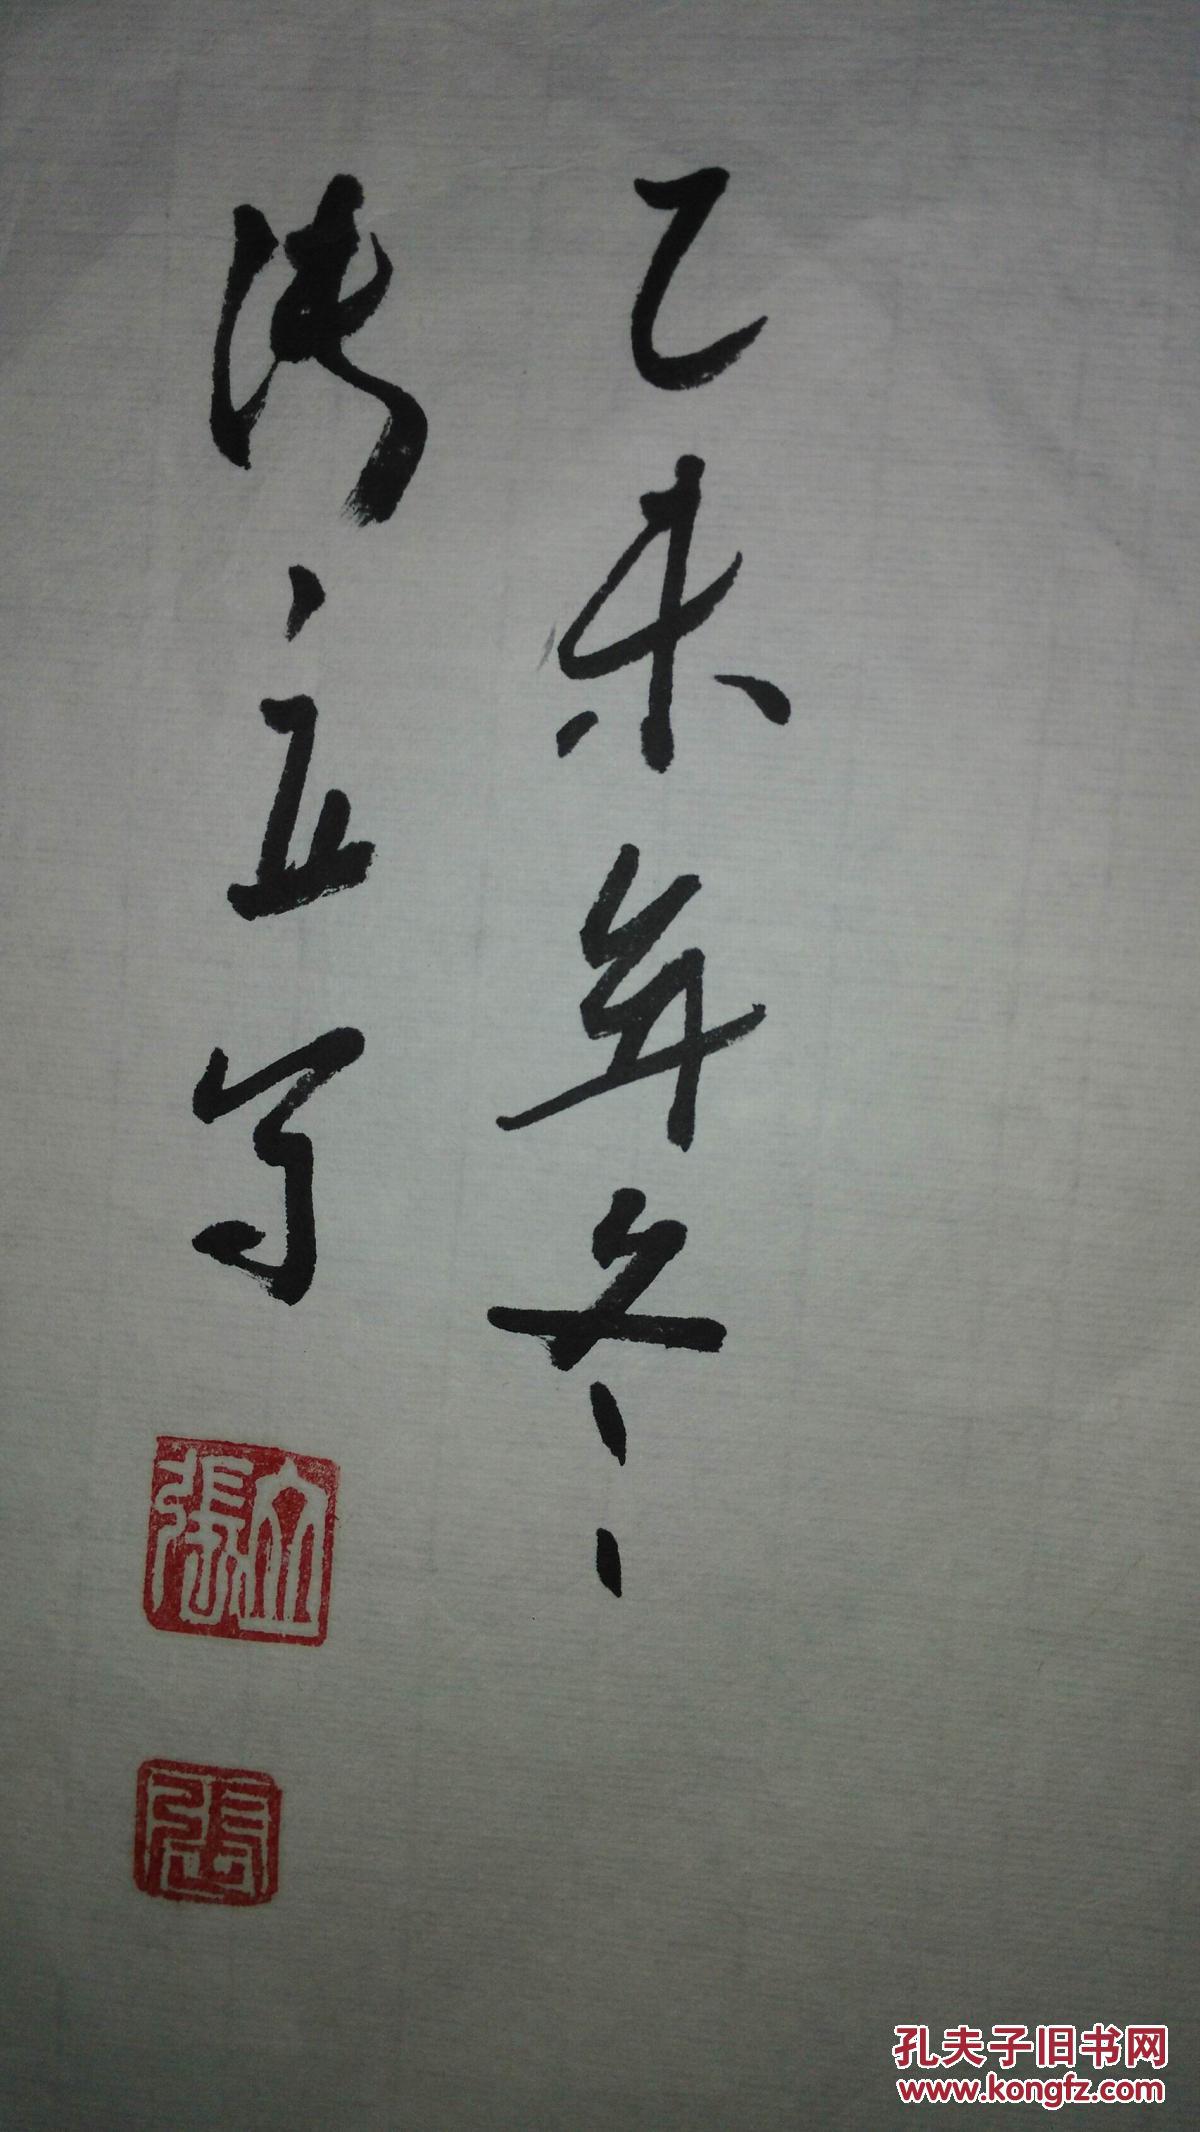 乙未年冬
张立写
張立
張
孔夫子旧书网
www.kongfz.com